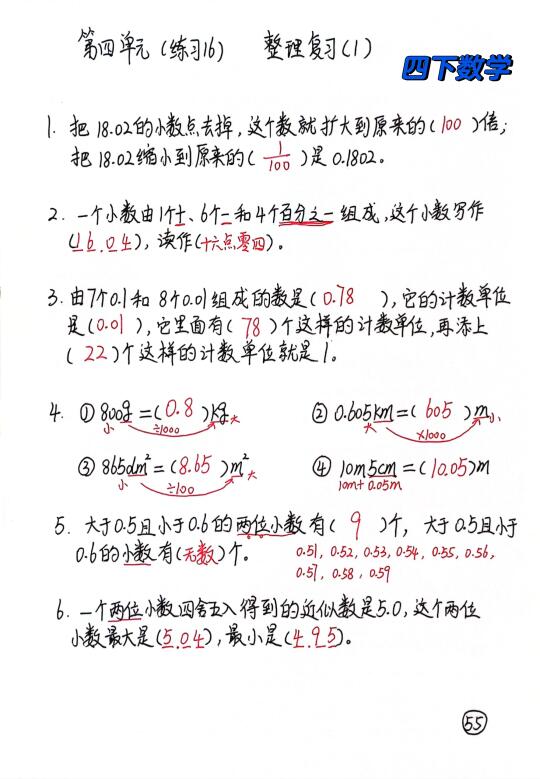 第四单元（练习16） 整理复习（1）
四下数学
1. 把18.02的小数点去掉，这个数就扩大到原来的（100）倍；
把18.02缩小到原来的（1/100）是0.1802。
2. 一个小数由1个十、6个一和4个百分之一组成，这个小数写作
（16.04），读作（十六点零四）。
3. 由7个0.1和8个0.01组成的数是（0.78），它的计数单位
是（0.01），它里面有（78）个这样的计数单位，再添上
（22）个这样的计数单位就是1。
4. ①800g=（0.8）kg ②0.605km=（605）m
小 ÷1000 大 大 ×1000 小
③865dm²=（8.65）m² ④10m5cm=（10.05）m
小 ÷100 大 10m+0.05m
5. 大于0.5且小于0.6的两位小数有（9）个，大于0.5且小于
0.6的小数有（无数）个。 0.51，0.52，0.53，0.54，0.55，0.56，
0.57，0.58，0.59
6. 一个两位小数四舍五入得到的近似数是5.0，这个两位
小数最大是（5.04），最小是（4.95）。
55